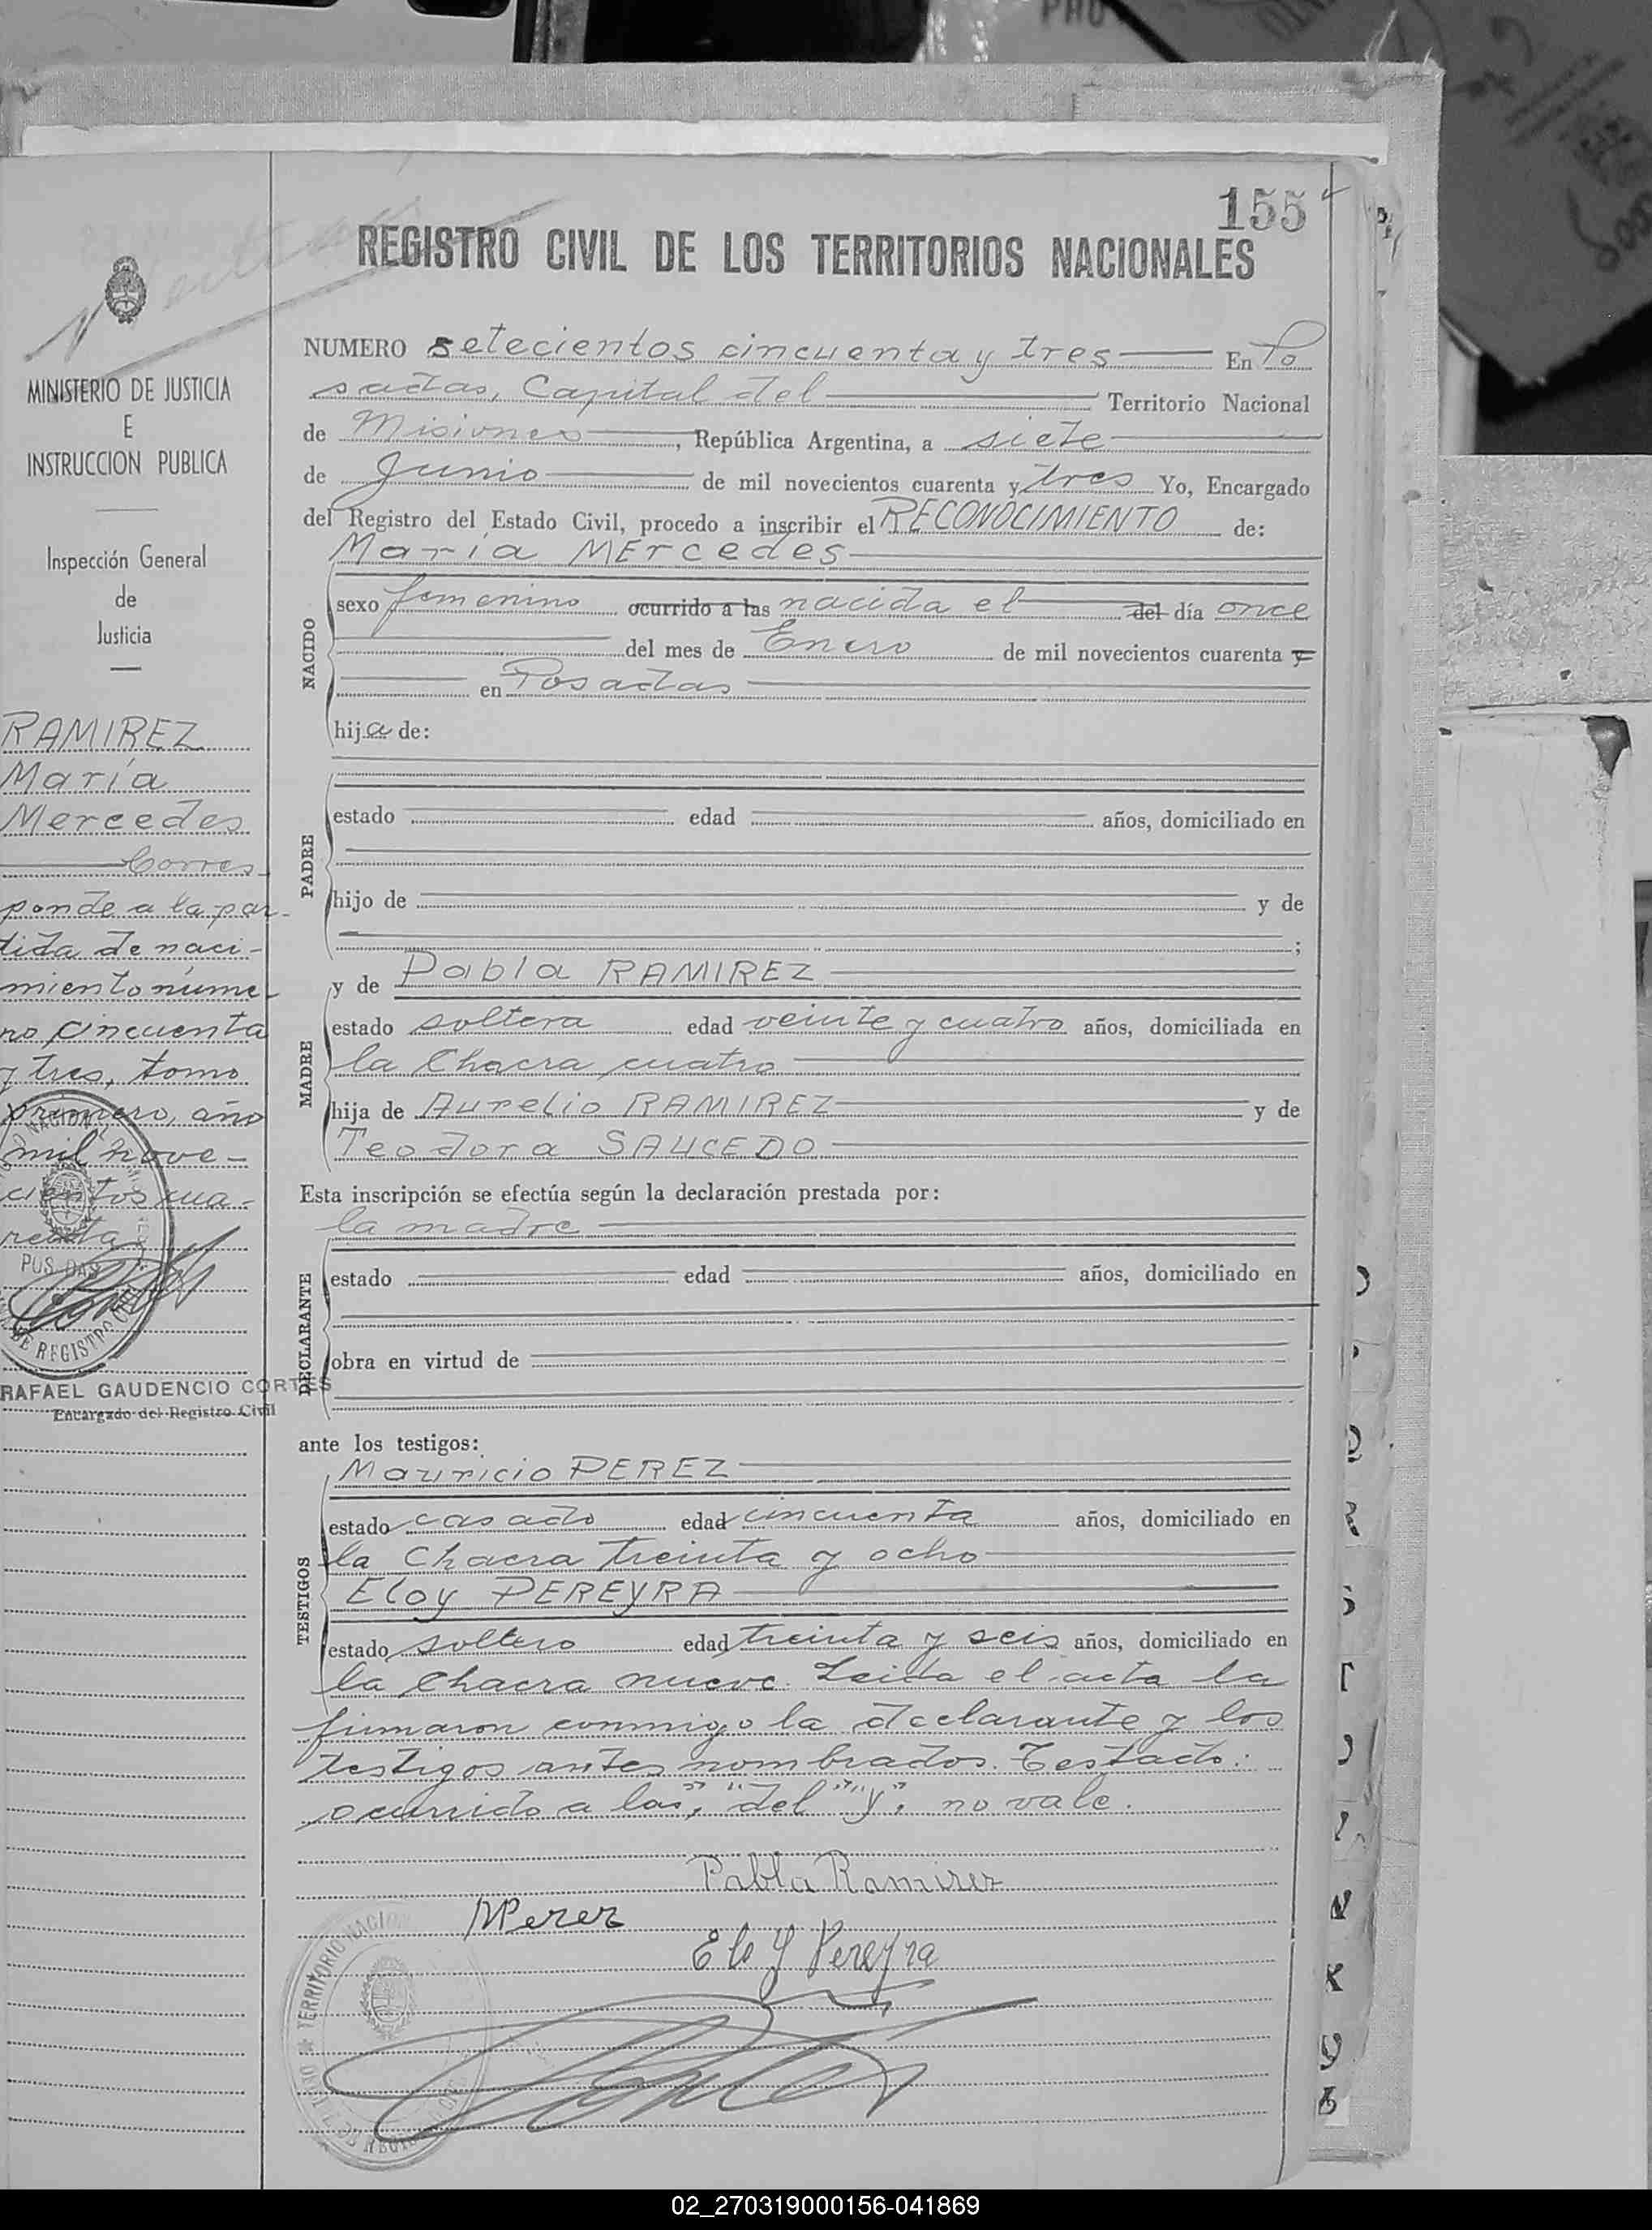 155
REGISTRO CIVIL DE LOS TERRITORIOS NACIONALES
MINISTERIO DE JUSTICIA
E
INSTRUCCION PUBLICA
Inspección General
de
Justicia
RAMIREZ
María
Mercedes
Corres
ponde a la par-
tida de naci-
miento núme-
ro cincuenta
y tres, tomo
primero, año
mil nove-
cientos cua-
renta
RAFAEL GAUDENCIO CORTES
Encargado del Registro Civil
NUMERO setecientos cincuenta y tres En Po
sadas, Capital del Territorio Nacional
de Misiones, República Argentina, a siete
de Junio de mil novecientos cuarenta y tres Yo, Encargado
del Registro del Estado Civil, procedo a inscribir el RECONOCIMIENTO de:
María MErcedes
NACIDO
sexo femenino ocurrido a las nacida el del día once
del mes de Enero de mil novecientos cuarenta y
en Posadas
hija de:
PADRE
estado edad años, domiciliado en
hijo de y de
;
y de Pabla RAMIREZ
MADRE
estado soltera edad veinte y cuatro años, domiciliada en
la Chacra cuatro
hija de Aurelio RAMIREZ y de
Teodora SAUCEDO
Esta inscripción se efectúa según la declaración prestada por:
la madre
DECLARANTE
estado edad años, domiciliado en
obra en virtud de
ante los testigos:
Mauricio PEREZ
TESTIGOS
estado casado edad cincuenta años, domiciliado en
la Chacra treinta y ocho
Eloy PEREYRA
estado soltero edad treinta y seis años, domiciliado en
la Chacra nueve. Leida el acta la
firmaron conmigo la declarante y los
testigos antes nombrados. Testado:
ocurrido a las", "del" "y". no vale.
Pabla Ramirez
MPerez
Eloy Pereyra
TERRITORIO NACION
02_270319000156-041869